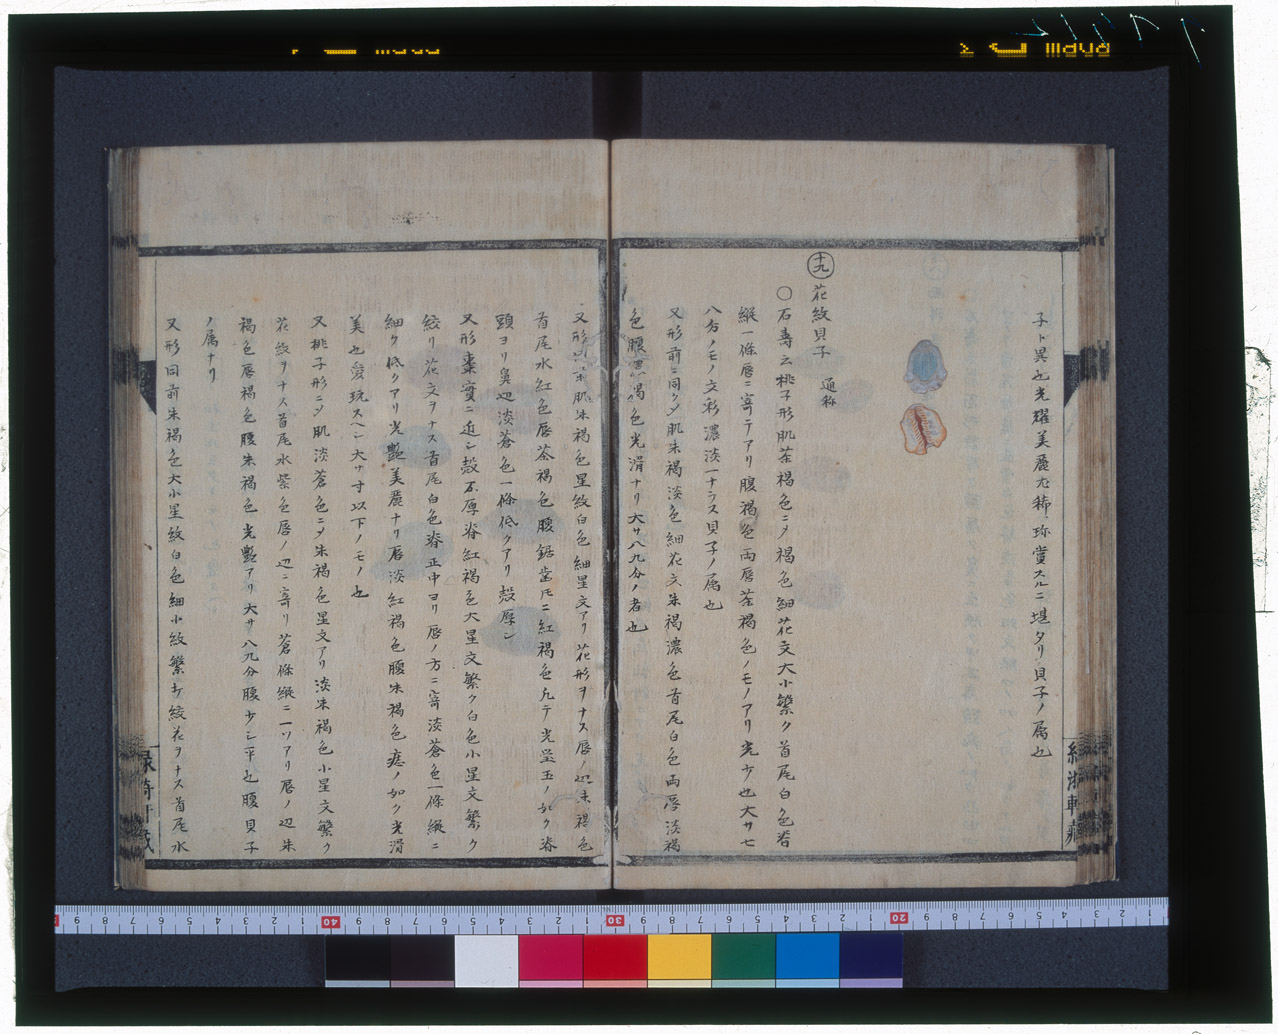 子ト異也光耀美麗尤稀珍賞スルニ堪タリ貝子ノ属也
十九
花紋貝子 通称
〇石壽云桃子形肌茶褐色ニメ褐色細花文大小繁ク首尾白ク色脊
縦一條唇ニ寄テアリ腹褐色両唇茶褐色ノモノアリ光少也大サ七
八分ノモノ文彩濃淡一ナラス貝子ノ属也
又形前ニ同クメ肌朱褐淡色細花文朱褐濃色首尾白色両唇淡褐
色腹黒褐色光滑ナリ大サ八九分ノ者也
又形同前肌朱褐色星紋白色細星文アリ花形ヲナス唇ノ辺朱褐色
首尾水紅色唇茶褐色腹鋸歯圧ニ紅褐色凡テ光瑩玉ノ如ク脊
頭ヨリ鼻辺淡蒼色一條低クアリ殻厚シ
又形棗實ニ近シ殻不厚脊紅褐色大星文繁ク白色小星文繁ク
絞リ花文ヲナス首尾白色脊正中ヨリ唇ノ方ニ寄淡蒼色一條縦ニ
細ク低クアリ光艶美麗ナリ唇淡紅褐色腹朱褐色痣ノ如ク光滑
美也愛玩スヘシ大サ寸以下ノモノ也
又桃子形ニメ肌淡蒼色ニメ朱褐色星文アリ淡朱褐色小星文繁ク
花紋ヲナス首尾水紫色唇ノ辺ニ寄リ蒼條縦ニ一ツアリ唇ノ辺朱
褐色唇褐色腹朱褐色光艶アリ大サ八九分腹少シ平也腹貝子
ノ属ナリ
又形同前朱褐色大小星紋白色細小紋繁ク絞花ヲナス首尾水